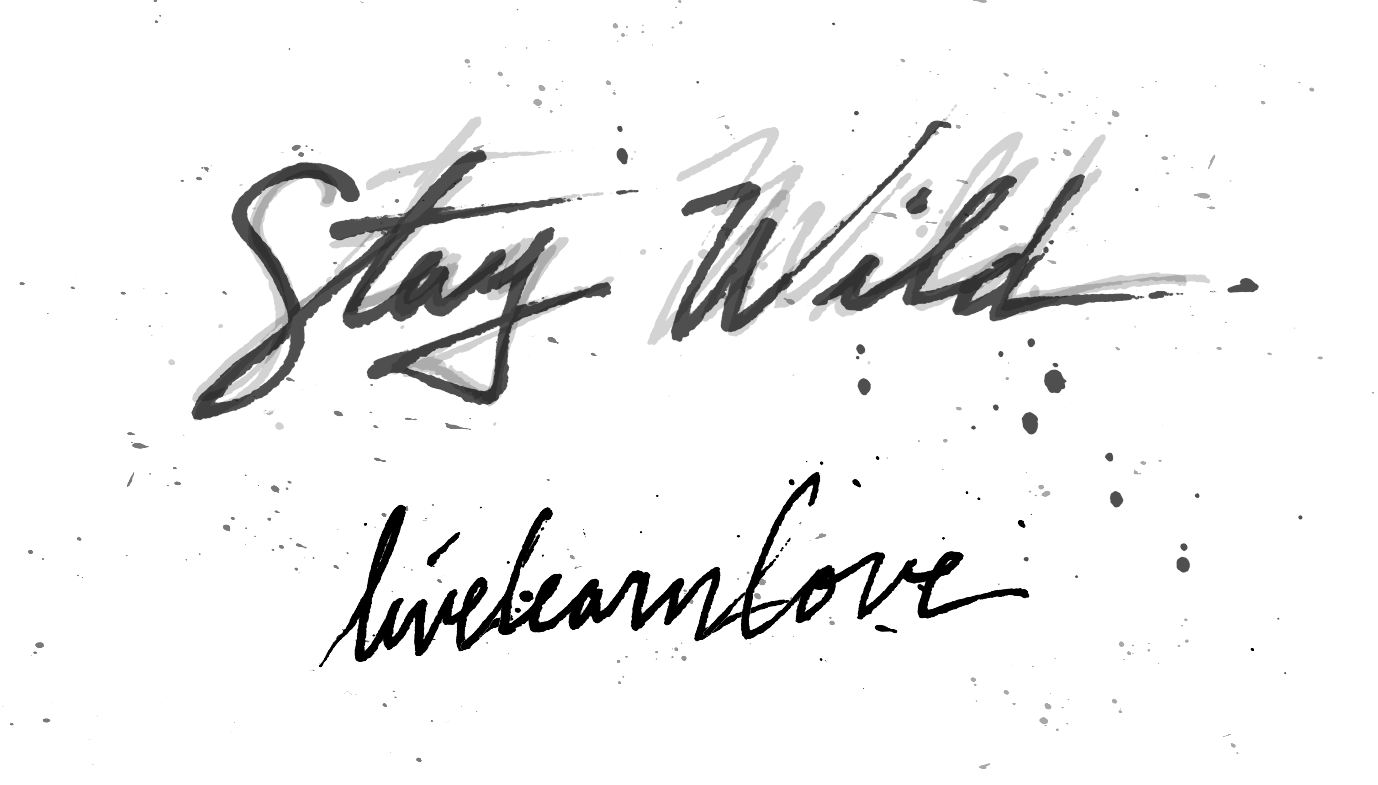 Stay Wild
livelearnlove